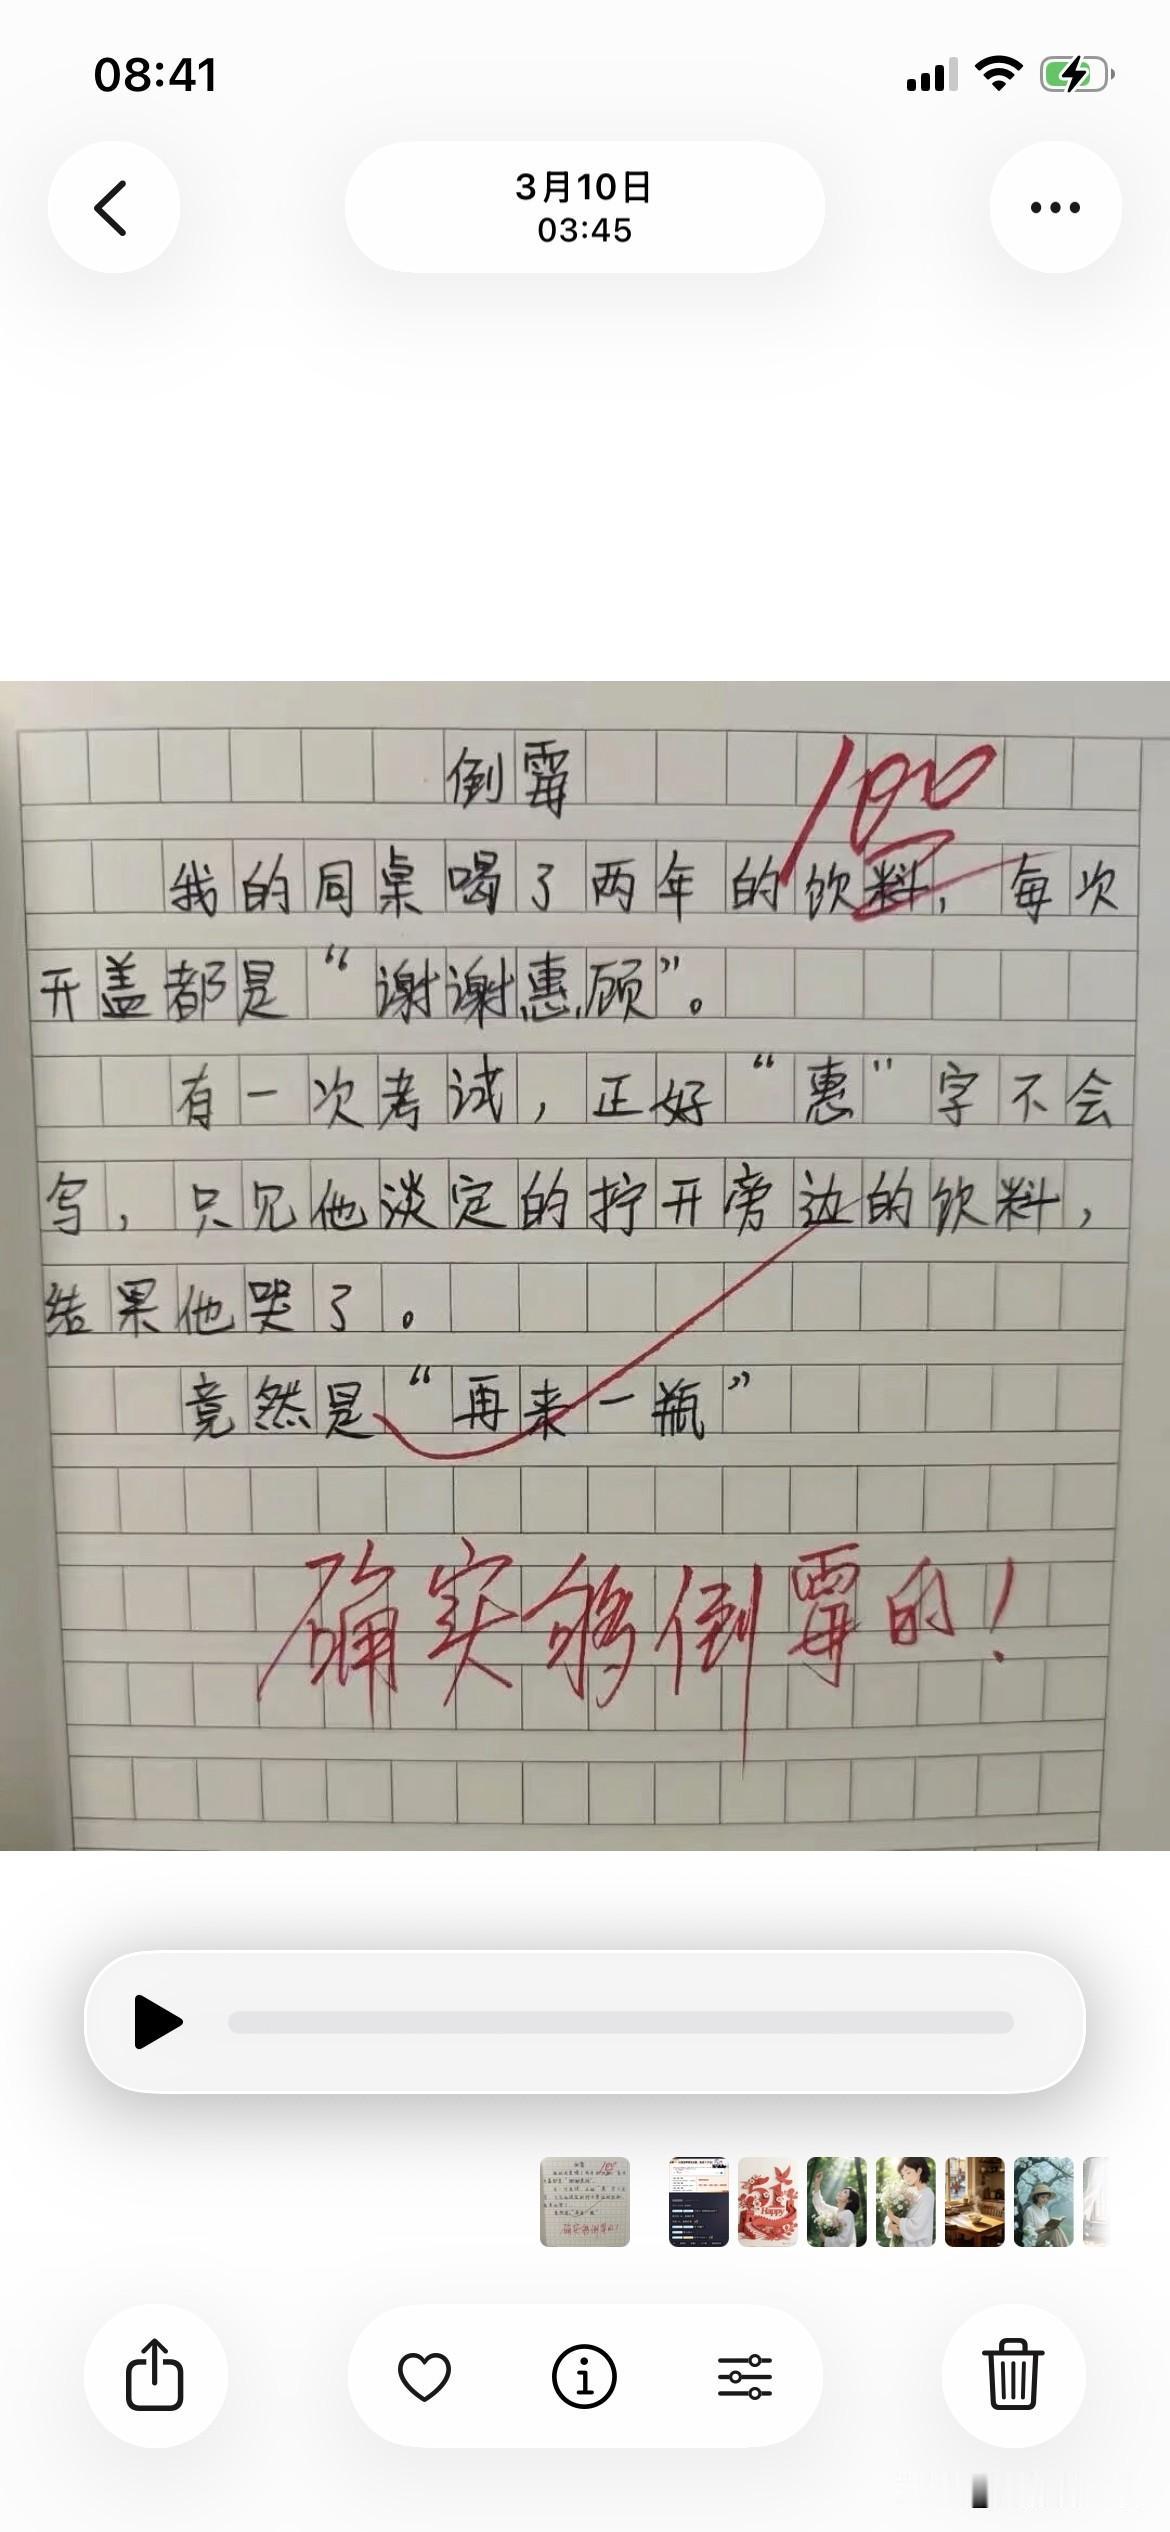 08:41
3月10日
03:45
倒霉
100
我的同桌喝了两年的饮料，每次
开盖都是“谢谢惠顾”。
有一次考试，正好“惠”字不会
写，只见他淡定的拧开旁边的饮料，
结果他哭了。
竟然是“再来一瓶”
确实够倒霉的！
51
Happy